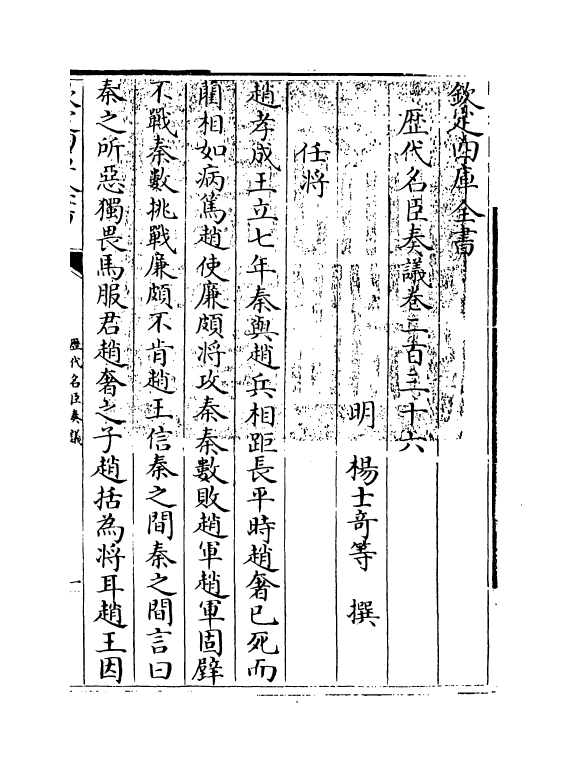 欽定四庫全書
歴代名臣奏議卷二百三十六
明 楊士竒等 撰
任將
趙孝成王立七年秦與趙兵相距長平時趙奢已死而
藺相如病篤趙使廉頗將攻秦秦數敗趙軍趙軍固壁
不戰秦數挑戰廉頗不肯趙王信秦之間秦之間言曰
秦之所惡獨畏馬服君趙奢之子趙括為將耳趙王因
歴代名臣奏議
一